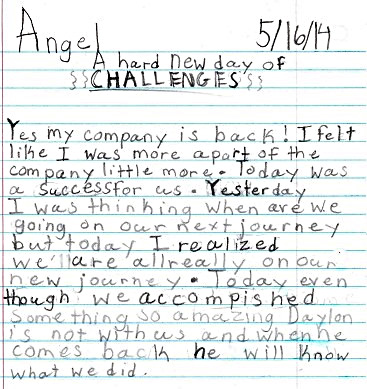 Angel 5/16/14
A hard new day of
CHALLENGES
Yes my company is back! I felt
like I was more apart of the
company little more. Today was
a success for us. Yesterday
I was thinking when are we
going on our next journey
but today I realized
we'll are allreally on our
new journey. Today even
though we accompished
Something so amazing Daylon
is not with us and when he
comes back he will know
what we did.